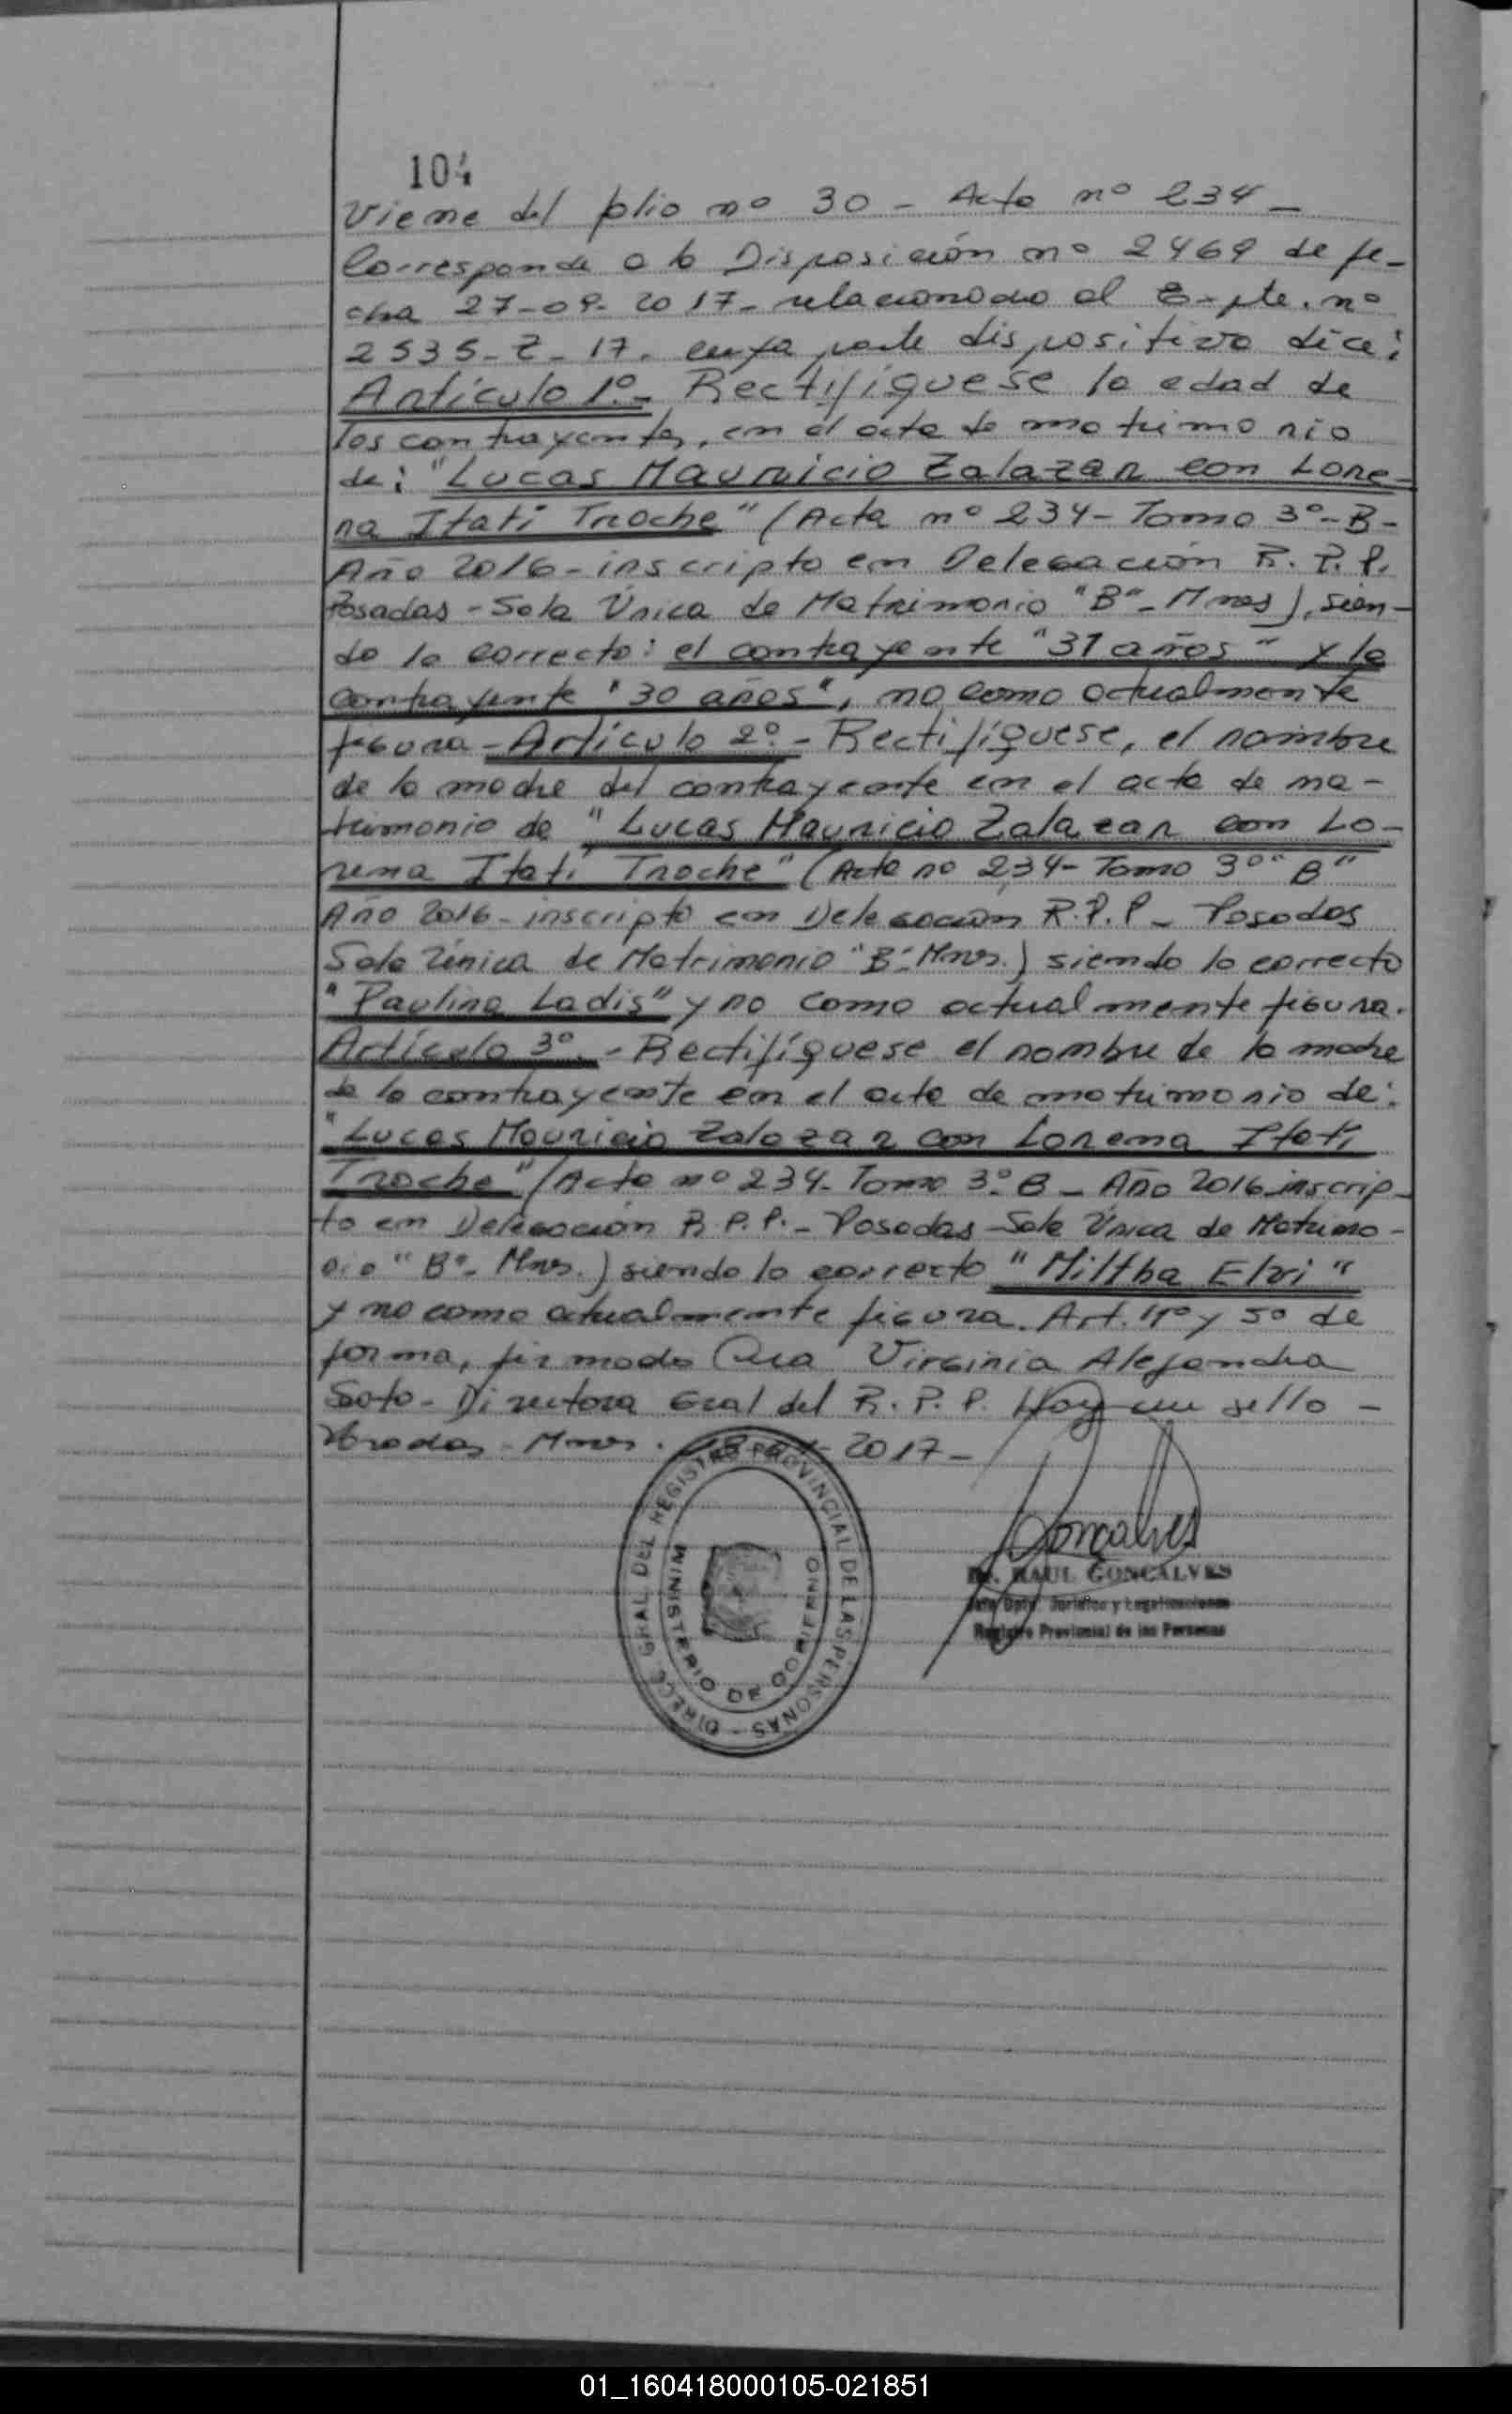 104
Viene del folio nº 30 - Acta nº 234 -
Corresponde a la Disposición nº 2469 de fe-
cha 27-09-2017- relacionado al Expte. nº
2535-Z-17. cuya parte dispositiva dice:
Artículo 1º- Rectifíquese la edad de
los contrayentes, en el acta de matrimonio
de: "Lucas Mauricio Zalazar con Lore-
na Itatí Troche" (Acta nº 234- Tomo 3º-B-
Año 2016- inscripto en Delegación R. P. P.
Posadas - Sala Única de Matrimonio "B"- Mnes), sien-
do lo correcto: el contrayente "31 años" y la
contrayente "30 años", no como actualmente
figura - Artículo 2º.- Rectifíquese, el nombre
de la madre del contrayente en el acta de ma-
trimonio de "Lucas Mauricio Zalazar con Lo-
rena Itatí Troche" (Acta nº 234- Tomo 3º "B"
Año 2016- inscripto en Delegación R.P.P - Posadas
Sala Única de Matrimonio "B"- Mnes.) siendo lo correcto
"Paulina Ladis" y no como actualmente figura.
Artículo 3º.- Rectifíquese el nombre de la madre
de la contrayente en el acta de matrimonio de:
"Lucas Mauricio Zalazar con Lorena Itatí
Troche" (Acta nº 234- Tomo 3º. B - Año 2016 inscrip-
to en Delegación R.P.P.- Posadas - Sala Única de Matrimo-
nio "B"- Mnes.) siendo lo correcto "Miltha Elvi"
y no como actualmente figura. Art. 4º y 5º de
forma, firmado Virginia Alejandra
Soto - Directora Gral del R. P. P. Hay un sello -
Posadas - Mnes. 2017 -
DIRECC. GRAL. DEL REGISTRO PROVINCIAL DE LAS PERSONAS -
MINISTERIO DE GOBIERNO
Goncalves
Dr. RAUL GONCALVES
Jefe Dpto. Jurídico y Legalizaciones
Registro Provincial de las Personas
01_160418000105-021851